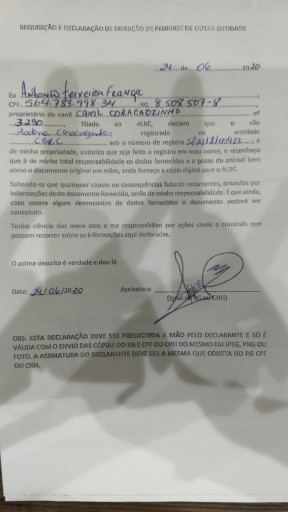 REQUISIÇÃO E DECLARAÇÃO DE INSERÇÃO DE PEDIGREE DE OUTRA ENTIDADE
24 de 06 2020
Eu Antonio Ferreira França
CPF 564.753.998.34 RG 8.508.507-8
proprietário do canil CANIL CORACAOZINHO nº
3290 filiado ao ALKC, declaro que o cão
registrado na entidade
sob o número de registro é
de minha propriedade, autorizo que seja feito o registro em meu nome, e reconheço
que é de minha total responsabilidade os dados fornecidos e a posse do animal bem
como o documento original em mãos, onde forneço a cópia digital para o ALKC.
Sabendo-se que quaisquer causas ou consequências futuras recorrentes, oriundos por
informações deste documento fornecido, serão de minha responsabilidade. E que ainda,
caso ocorra algum desencontro de dados fornecidos o documento poderá ser
cancelado.
Tenho ciência dos meus atos e me responsabilizo por ações cíveis e criminais que
possam recorrer sobre as informações aqui declaradas.
O acima descrito é verdade e dou fé
Data: 24/06/2020 Assinatura:
(Igual do RG ou CNH)
OBS: ESTA DECLARAÇÃO DEVE SER PREENCHIDA A MÃO PELO DECLARANTE E SÓ É
VÁLIDA COM O ENVIO DAS CÓPIAS DO RG E CPF OU CNH DO MESMO EM JPEG, PNG OU
FOTO. A ASSINATURA DO DECLARANTE DEVE SER A MESMA QUE CONSTA NO RG CPF
OU CNH.